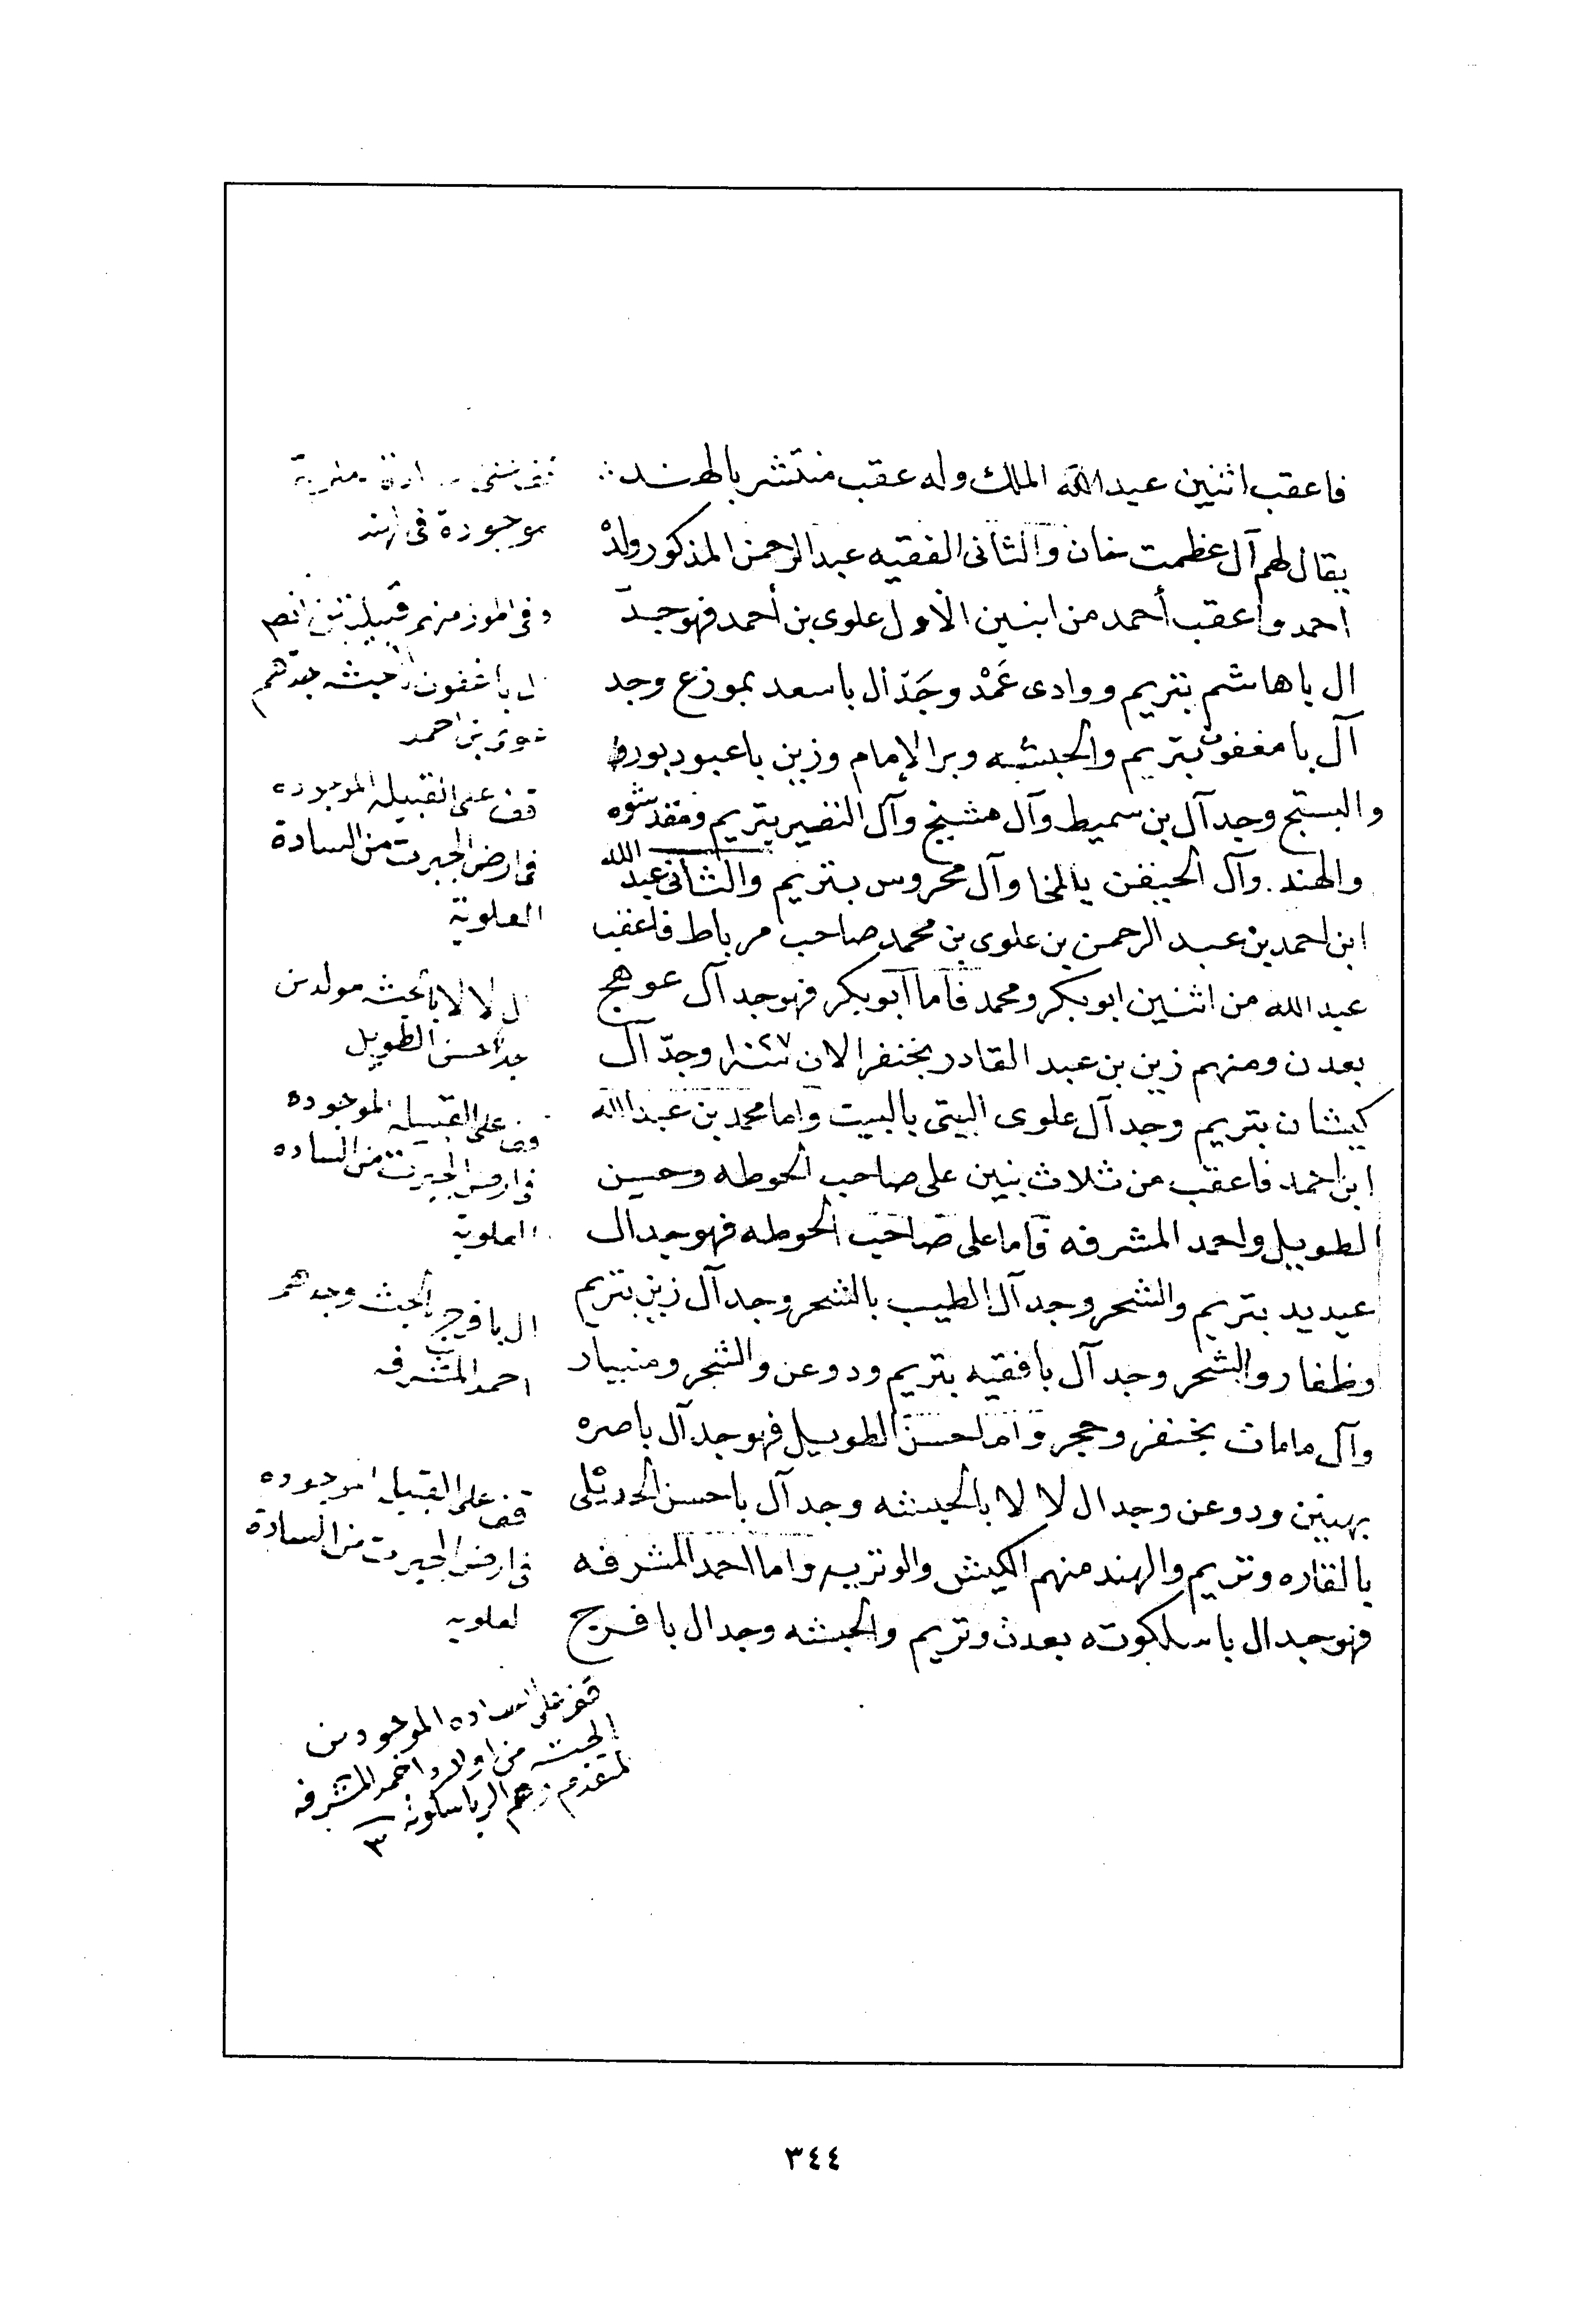 فاعقب اثنين عبد الله الملك وله عقب منتشر بالهند
يقال لهم آل عظمت خان والثانى الفقيه عبد الرحمن المذكور ولد
احمد واعقب أحمد من ابنين الأول علوى بن أحمد فهو جدّ
ال باهاشم بتريم ووادى عَمْد وجَدّ ال باسعد بموزع وجد
آل بامغفون بتريم والحبشه وبر الإمام وزين باعبود بورو
والبستج وجد آل بن سميط وآل مشيخ وآل النضير بتريم ومقدشوه
والهند وآل الحبفن بالمخا وآل محروس بتريم والثانى عبد الله
ابن احمد بن عبد الرحمن بن علوى بن محمد صاحب مرباط فاعقب
عبد الله من اثنين ابوبكر ومحمد فأما أبوبكر فهو جد آل عوهج
بعدن ومنهم زين بن عبد القادر بخنفر الان سنة ١٠٢٧ وجدّ آل
كيشان بتريم وجد آل علوى البيتى بالبيت واما محمد بن عبد الله
ابن احمد فاعقب من ثلاث بنين على صاحب الحوطه وحسين
الطويل واحمد المشرفه فاما على صاحب الحوطه فهو جد ال
عيديد بتريم والشحر وجد آل الطيب بالشحر وجد آل زين بتريم
وظفار والشحر وجد آل بافقيه بتريم ودوعن والشحر ومنيبار
وآل مامات بخنفر وحجر واما حسن الطويل فهو جد آل باصره
بهينن ودوعن وجد ال لا لا بالحبشه وجد آل باحسن الحديلى
بالقاره وتريم والهند منهم الكيش والوتريه واما احمد المشرفه
فهو جد ال باسكوته بعدن وتريم والحبشه وجد ال بافرج
موجودة فى الهند
وفى الموز منهم قبيلة
ال باغفون الحبشه جدهم
علوى بن احمد
قف على القبيله الموجوده
فى ارض الجبرت من السادة
العلوية
ال لا لا بالحبشه مولدين
جد احسن الطويل
قف على القبيله الموجوده
فى ارض الجبرت من الساده
العلوية
ال بافرج بالحبشه وجدهم
احمد المشرفه
قف على القبيله الموجوده
فى ارض الجبرت من السادة
العلويه
قف على الساده الموجودين
الحبشه من اولاد احمد المشرفه
المتقدم وهم ال باسكوته
٣
٣٤٤